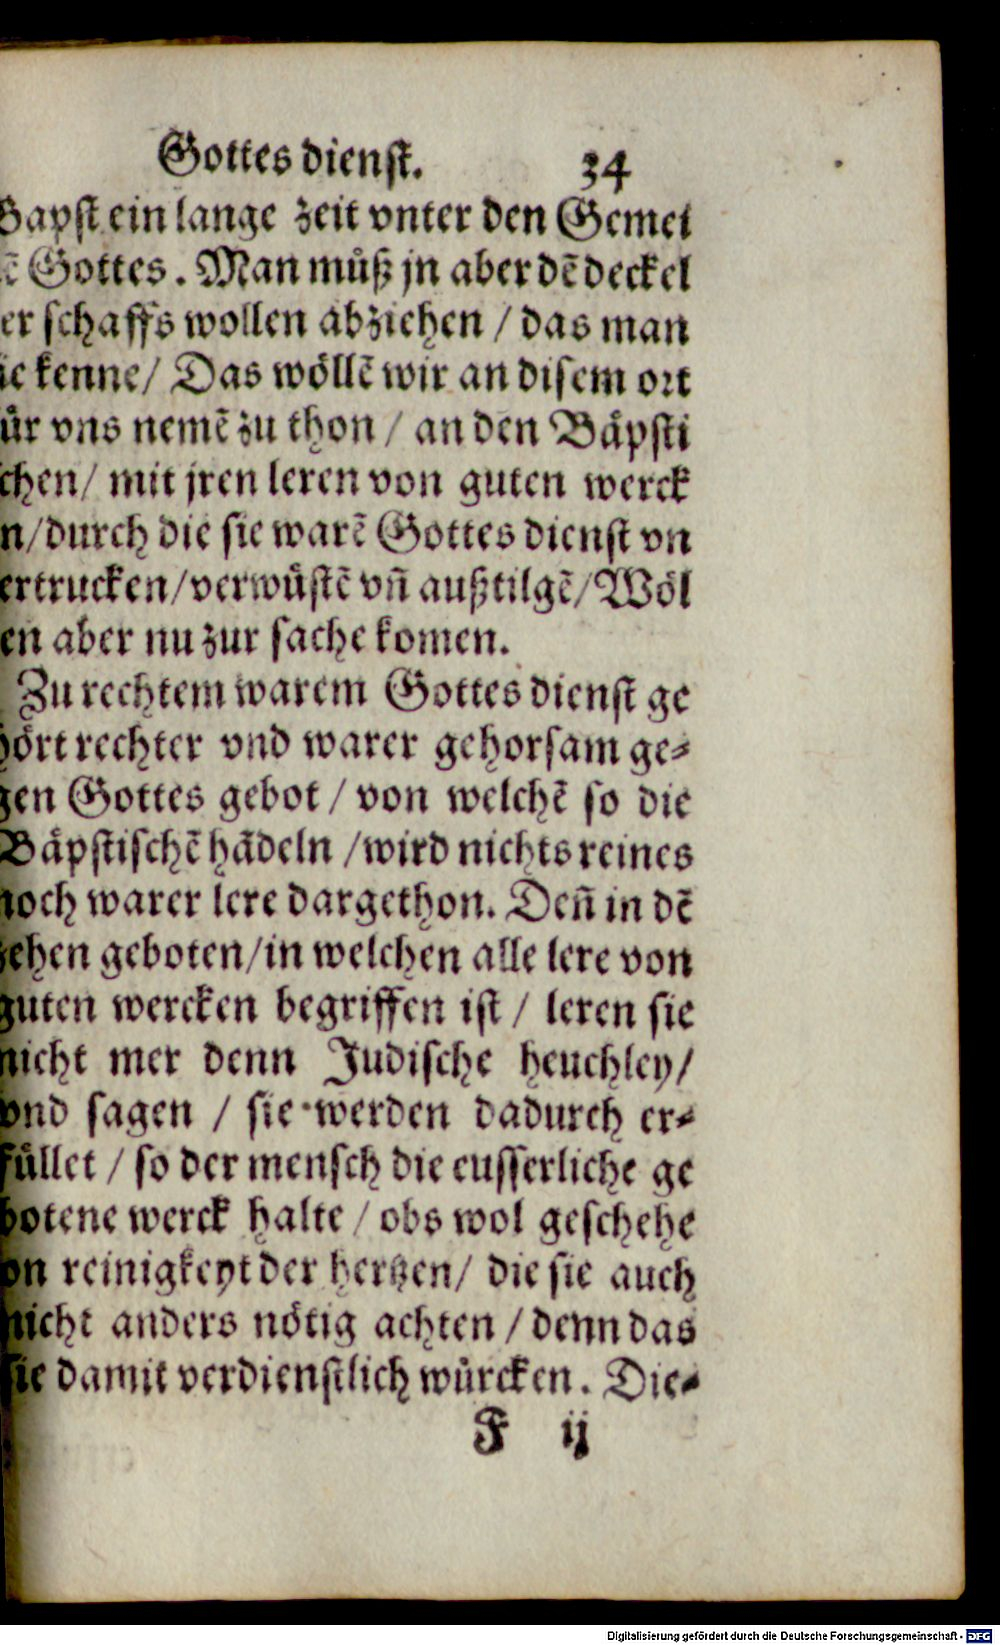 Gottes dienst. 34
Bapst ein lange zeit vnter den Gemei
Gottes. Man můß jn aber dē deckel
er schaffs wollen abziehen / das man
ie kenne/ Das wöllē wir an disem ort
ür vns nemē zu thon / an den Bäpsti
chen/ mit jren leren von guten werck
n/durch die sie warē Gottes dienst vn
ertrucken/verwüstē vn̄ außtilgē/Wöl
en aber nu zur sache komen.
Zu rechtem warem Gottes dienst ge
hört rechter vnd warer gehorsam ge-
gen Gottes gebot / von welchē so die
Bäpstischē hādeln /wird nichts reines
noch warer lere dargethon. Den̄ in dē
zehen geboten/in welchen alle lere von
guten wercken begriffen ist / leren sie
nicht mer denn Judische heuchley/
vnd sagen / sie werden dadurch er-
füllet / so der mensch die eusserliche ge
botene werck halte / obs wol geschehe
on reinigkeyt der hertzen/ die sie auch
nicht anders nötig achten / denn das
sie damit verdienstlich würcken. Die-
F ij
Digitalisierung gefördert durch die Deutsche Forschungsgemeinschaft - DFG